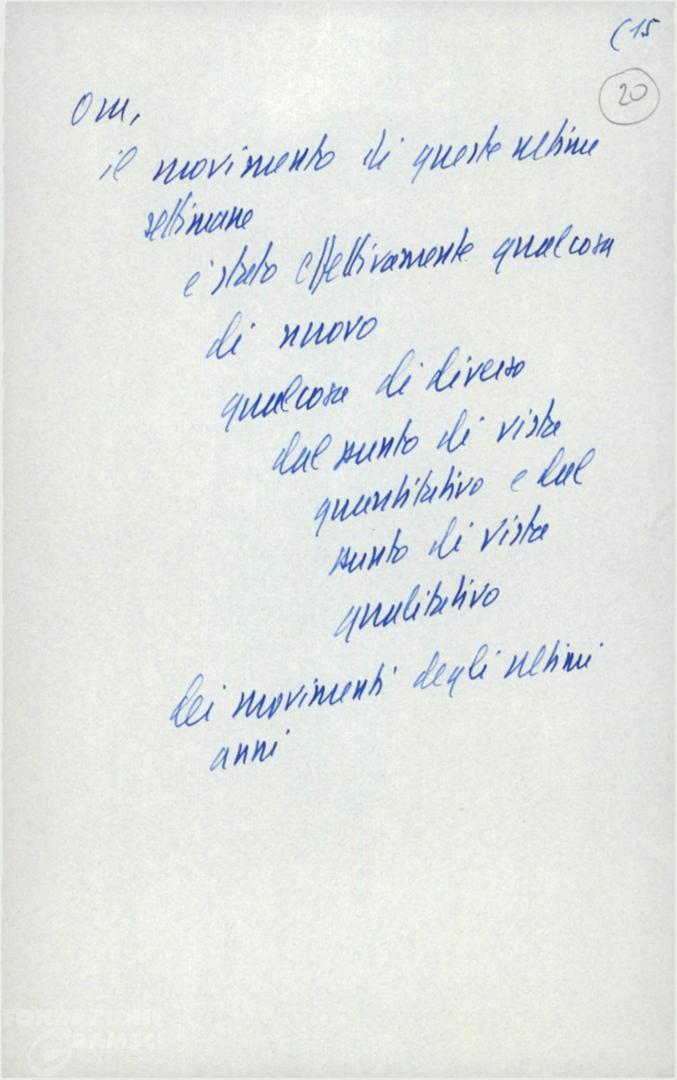 (15
20
Ora,
il movimento di queste ultime
settimane
è stato effettivamente qualcosa
di nuovo
qualcosa di diverso
dal punto di vista
quantitativo e dal
punto di vista
qualitativo
dei movimenti degli ultimi
anni
FONDAZIONE
GRAMSCI